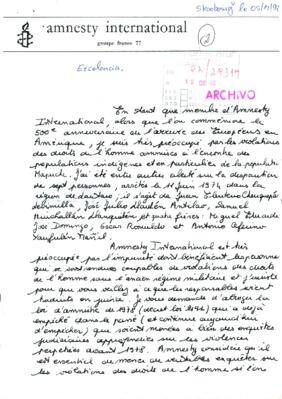 Strasbourg le 05/11/92
amnesty international
groupe france 77
2
Excelencia.
92/24311
ARCHIVO
En tant que membre d'Amnesty
International, alors que l'on commémore le
500e anniversaire de l'arrivée des Européens en
Amérique, je suis très préoccupé par les violations
des droits de l'homme commises à l'encontre des
populations indigènes et en particulier de la population
Mapuche. J'ai été entre autres alerté sur la disparition
de sept personnes, arrêtées le 11 Juin 1974 dans la
région de ; il s'agit de Juan Eleuterio Cheuquepán
Levimilla, José Julio Llaulén Antilao, Samuel
Huichallán Llanquilén et quatre frères : Miguel Eduardo
José Domingo, Oscar Romualdo et Antonio Ceferino
Yaufulén Mañil.
Amnesty International est très
préoccupé par l'impunité dont bénéficient les personnes
qui se sont rendues coupables de violations des droits
de l'homme sous l'ancien régime militaire et j'insiste
pour que vous veillez à ce que les responsables soient
traduits en justice. Je vous demande d'abroger la
loi d'amnistie de 1978 (décret loi 2191) qui a déjà
empêché dans le passé (et continue aujourd'hui
d'empêcher) que soient menées à bien des enquêtes
judiciaires approfondies sur les violences
perpétrées avant 1978. Amnesty considère qu'il
est essentiel de mener de véritables enquêtes sur
les violations des droits de l'homme si l'on